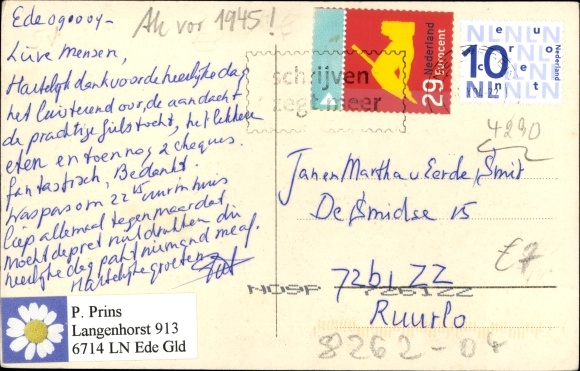 Ede 090004-
Ak vor 1945!
Lieve Mensen,
Hartelijk dank voor de heerlijke dag
het luisterend oor, de aandacht
de prachtige fietstocht, het lekkere
eten en toen nog 2 cheques.
fantastisch, Bedankt.
Was pas om 22 15 uur in huis
liep allemaal tegen maar dat
mocht de pret niet drukken die
heerlijke dag pakt niemand me af.
Hartelijke groeten
P. Prins
Langenhorst 913
6714 LN Ede Gld
schrijven
zegt meer
Nederland
29 eurocent
10
NL
euro
cent
Nederland
4290
Jan en Martha v Eerde, Smit
De Smidse 15
€7
7261 ZZ
NOSP 7261ZZ
Ruurlo
8262-04